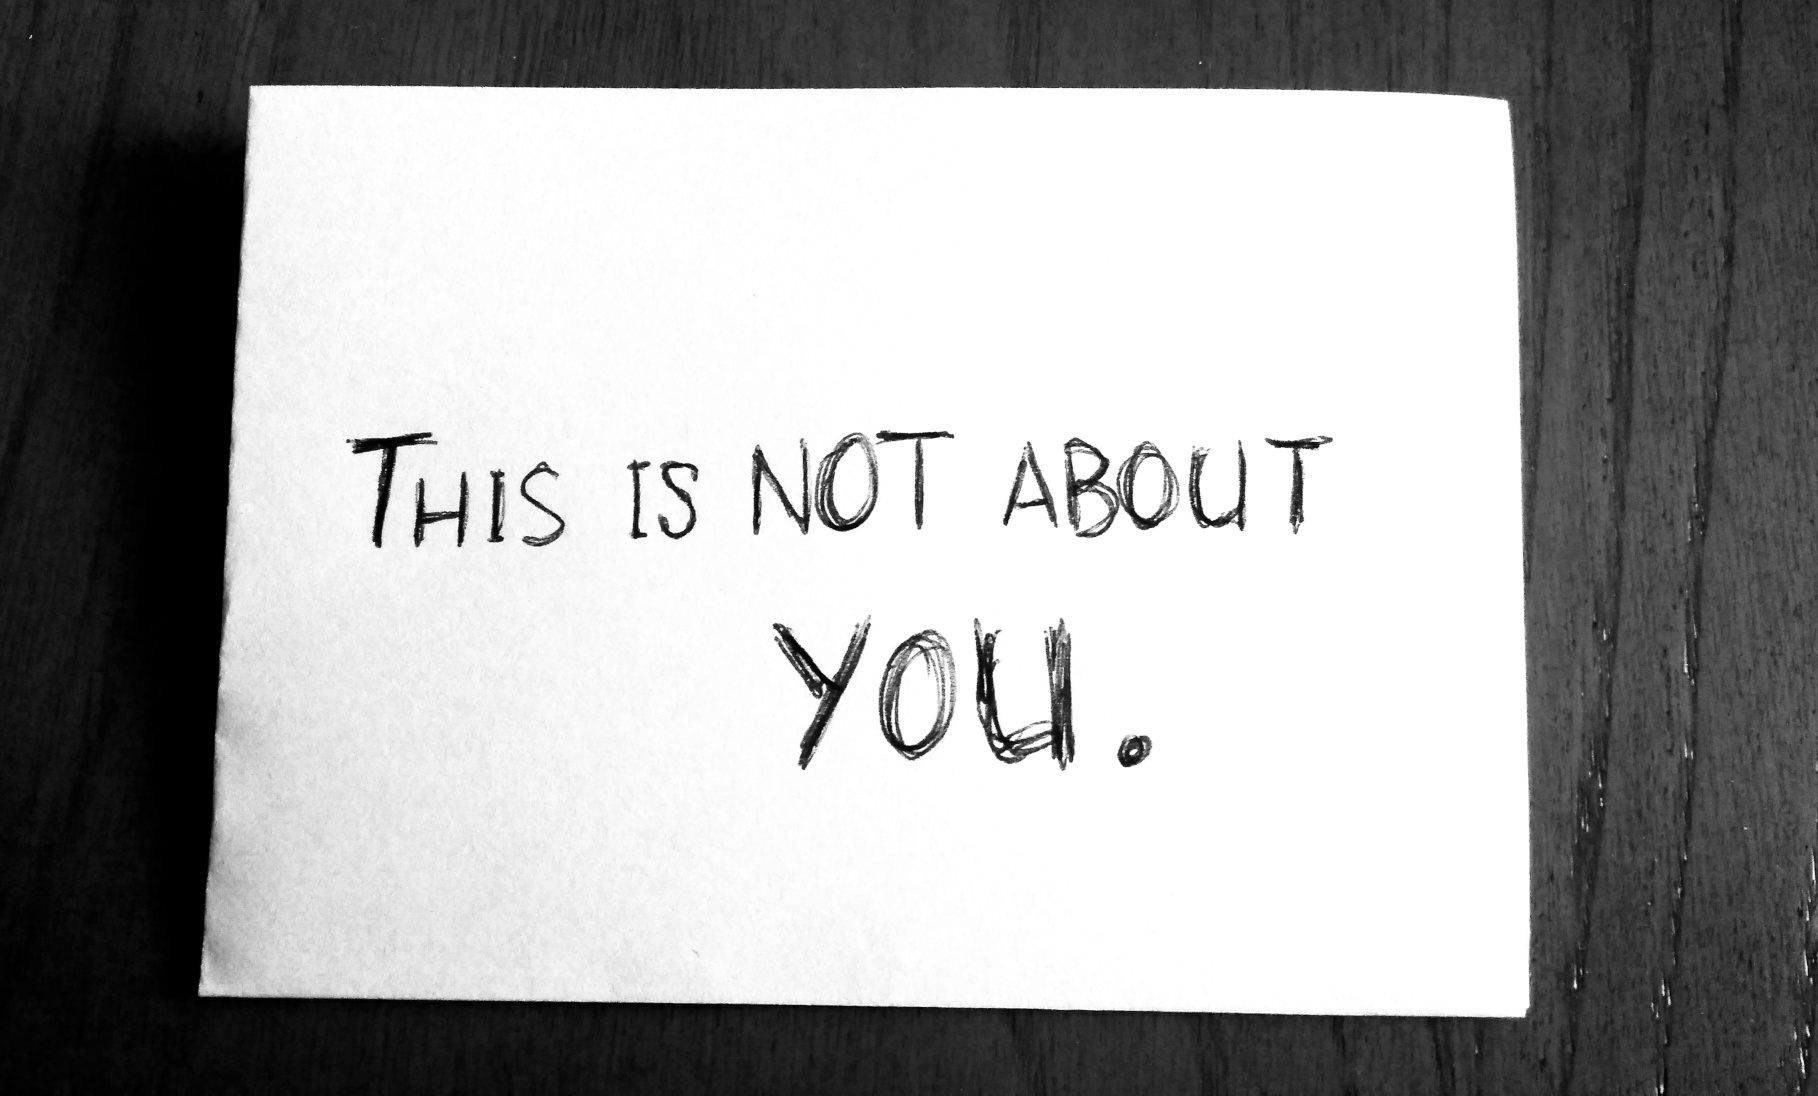 THIS IS NOT ABOUT
YOU.